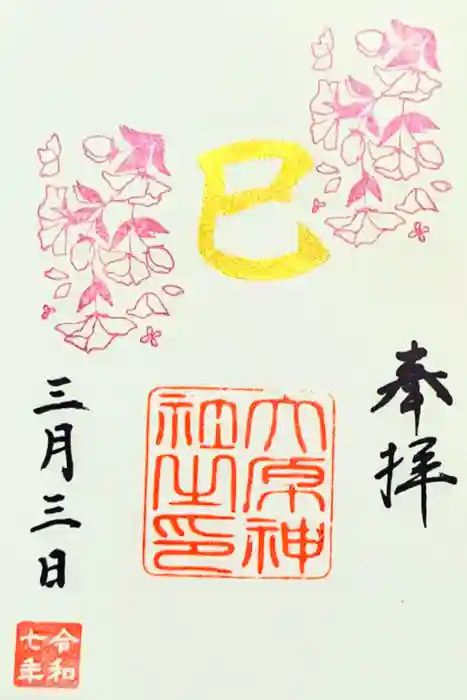 奉拝
巳
六原神
社之印
三月三日
令和
七年